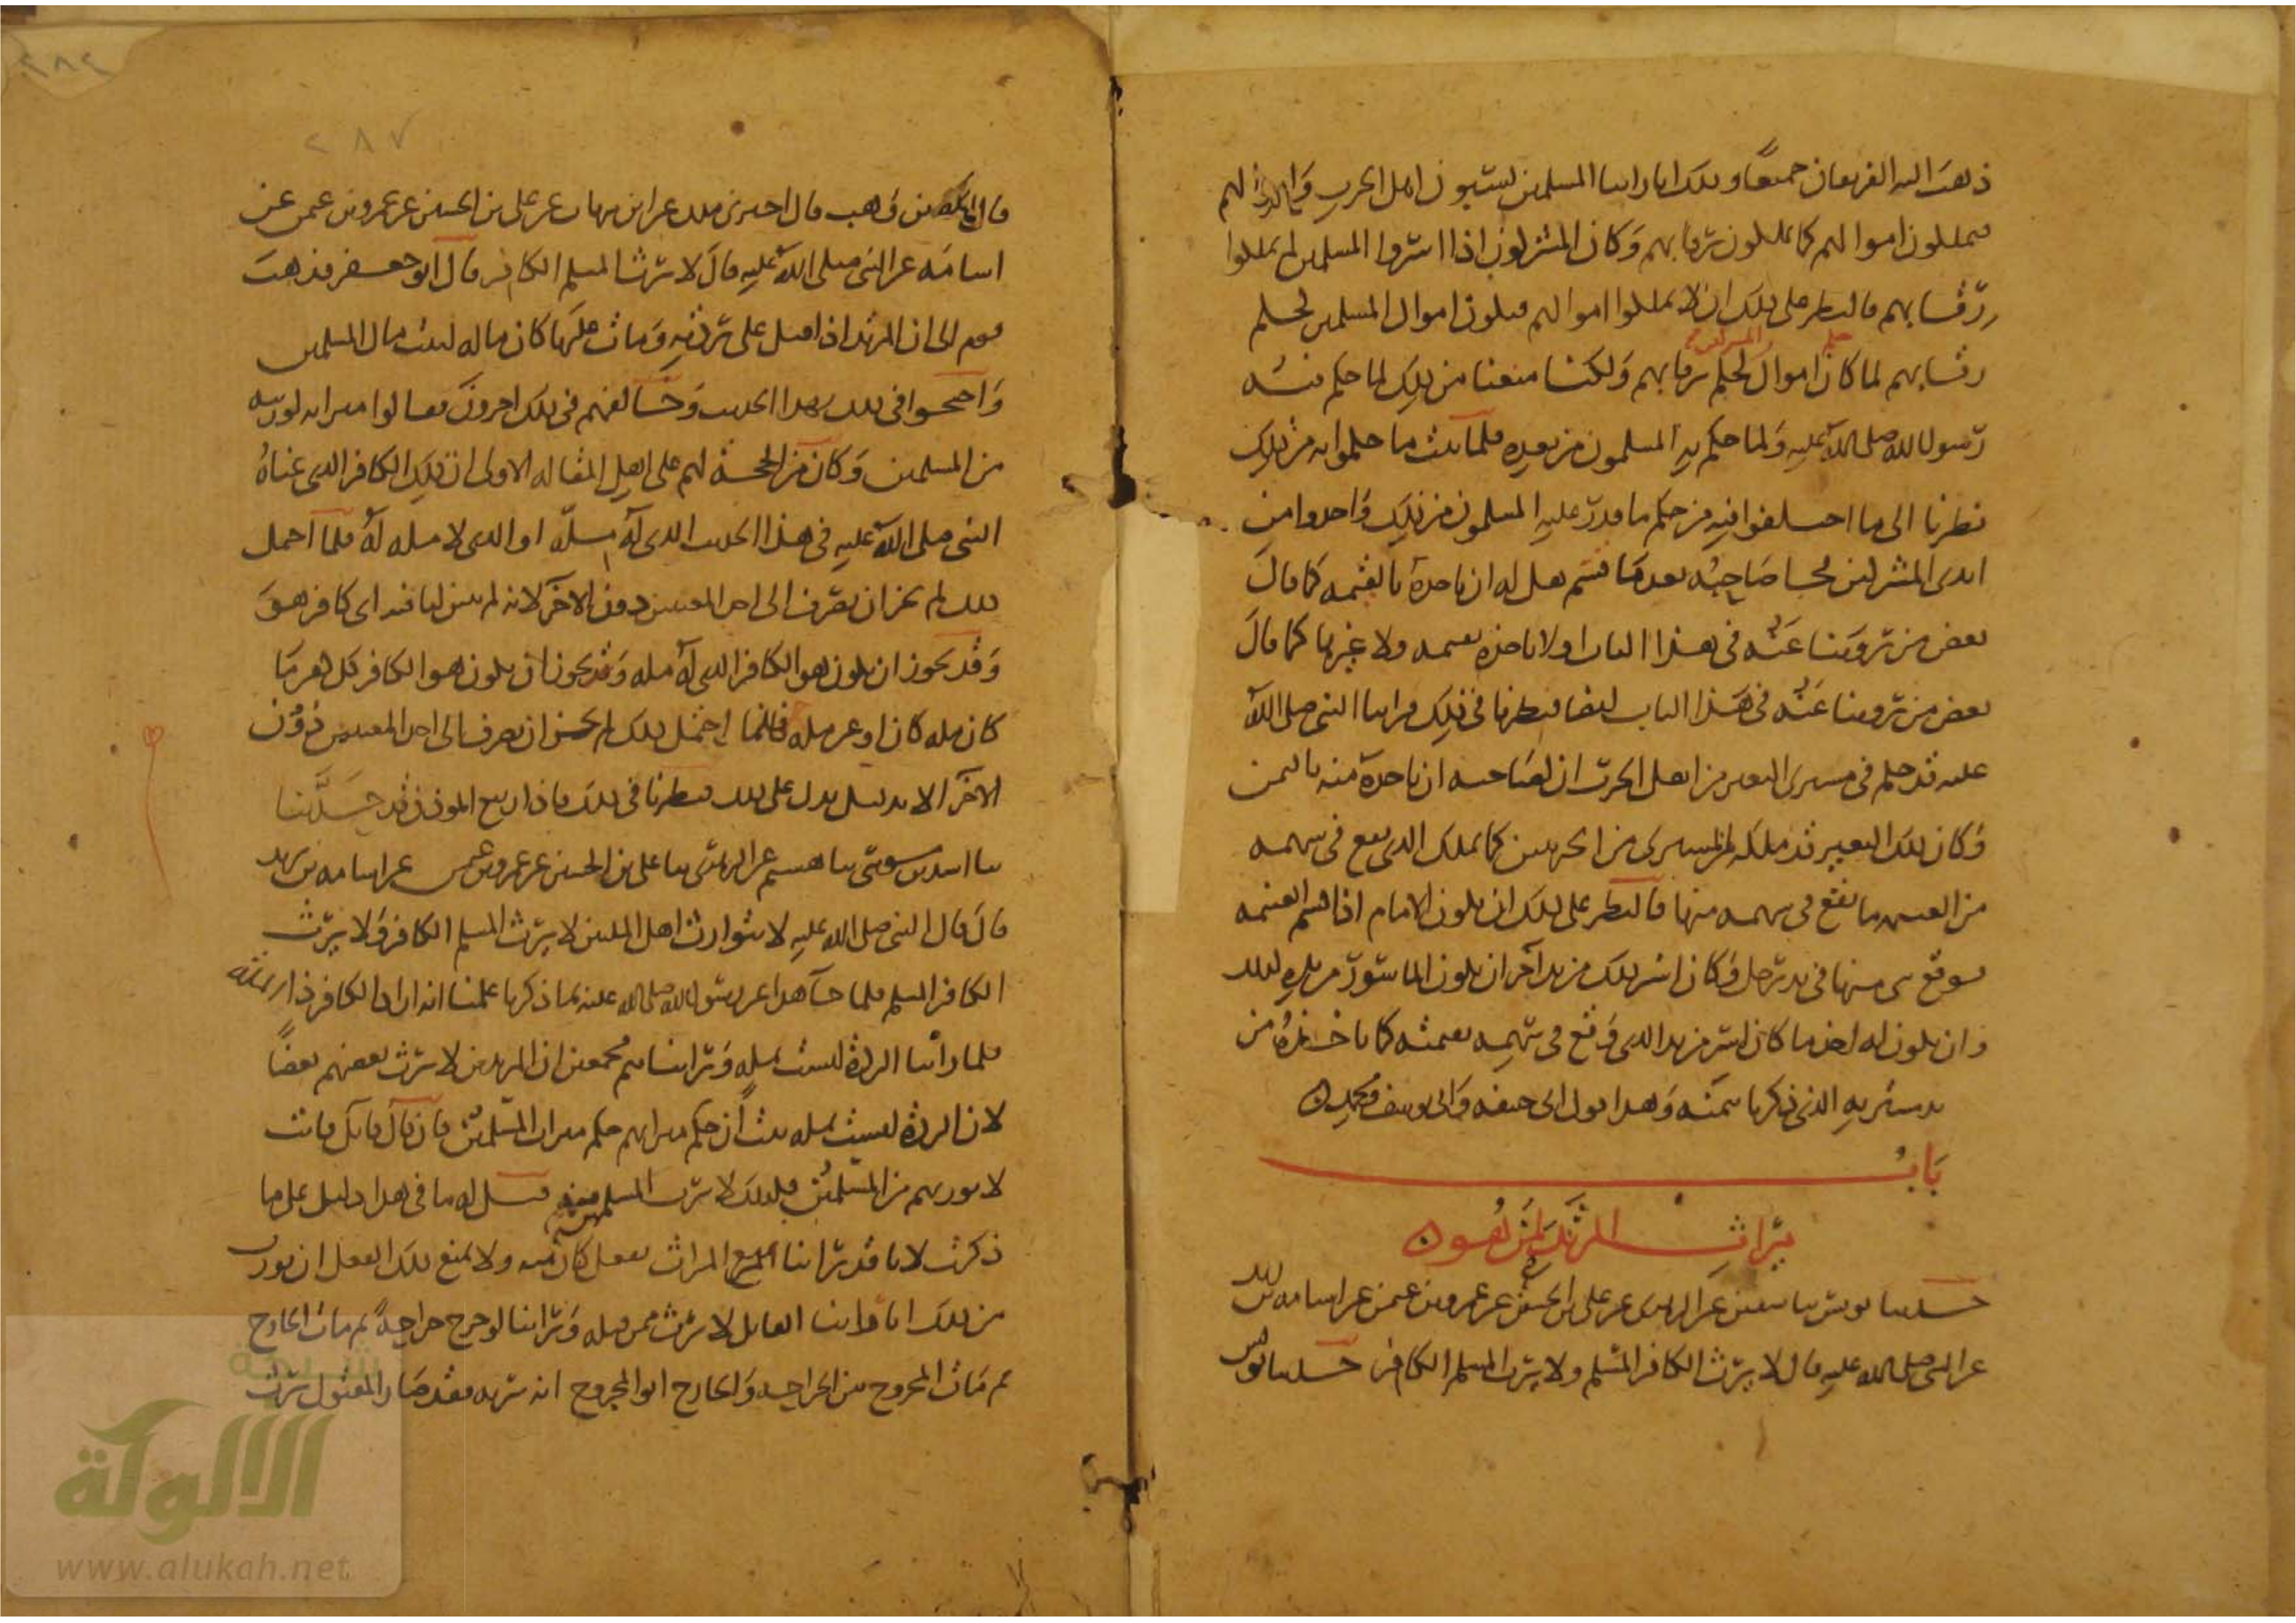 ذهب اليه الفريقان جميعا وذلك انا راينا المسلمين يسبون اهل الحرب وابناءهم
فيملكون اموالهم كما يملكون رقابهم وكان المشركون اذا اسروا المسلمين لم يملكوا
رقابهم فالنظر على ذلك ان لا يملكوا اموالهم فيكون اموال المسلمين لحكم
رقابهم لما كان حكم اموال المشركين لحكم رقابهم ولكنا منعنا من ذلك لما حكم فيه
رسول الله صلى الله عليه ولما حكم به المسلمون من بعده فلما ثبت ما حكموا به من ذلك
نظرنا الى ما اختلفوا فيه من حكم ما قدر عليه المسلمون من ذلك واخذوا من
ايدي المشركين فجا صاحبه بعدما قسم هل له ان ياخذه بالقيمة كما قال
بعض من روينا عنه في هذا الباب او لا ياخذه بقيمة ولا غيرها كما قال
بعض من روينا عنه في هذا الباب ايضا فنظرنا في ذلك فراينا النبي صلى الله
عليه قد حكم في مشتري البعير من اهل الحرب ان لصاحبه ان ياخذه منه بالثمن
وكان ذلك البعير قد ملكه المشتري من الحربيين كما يملك الذي يقع في سهمه
من الغنيمة ما يقع في سهمه منها فالنظر على ذلك ان يكون الامام اذا قسم الغنيمة
فوقع شي منها في يد رجل وكان اسر ذلك من يد اخر ان يكون الماسور من يده كذلك
وان يكون له اخذ ما كان اسر من يد الذي وقع في سهمه بقيمته كما ياخذه من
يد مشتريه الذي ذكرنا بثمنه وهذا قول ابي حنيفه وابي يوسف ومحمد
باب
ميراث المرتد لمن هو
حدثنا يونس نا سفين عن الزهري عن علي بن الحسين عن عمرو بن عثمن عن اسامه بن زيد
عن النبي صلى الله عليه قال لا يرث الكافر المسلم ولا يرث المسلم الكافر حدثنا يونس
٢٨٧
قال ابن وهب قال اخبرني ملك عن ابن شهاب عن علي بن الحسين عن عمرو بن عثمن عن
اسامه عن النبي صلى الله عليه قال لا يرث المسلم الكافر قال ابو جعفر فذهب
قوم الى ان المرتد اذا قتل على ردته او مات عليها كان ماله لبيت مال المسلمين
واحتجوا في ذلك بهذا الحديث وخالفهم في ذلك اخرون فقالوا ميراثه لورثته
من المسلمين وكان من الحجة لهم على اهل المقاله الاولى ان ذلك الكافر الذي عناه
النبي صلى الله عليه في هذا الحديث الذي له مله او الذي لا مله له فلما احتمل
ذلك لم يجز ان يصرف الى احد المعنيين دون الاخر لانه لم يبين لنا فيه اي كافر هو
وقد يجوز ان يكون هو الكافر الذي له مله وقد يجوز ان يكون هو الكافر كل كفر ما
كان مله كان او غير مله فلما احتمل ذلك لم يجز ان يصرف الى احد المعنيين دون
الاخر الا بدليل يدل على ذلك فنظرنا في ذلك فاذا ربيع الموذن قد حدثنا
نا اسد بن موسى نا هشيم عن الزهري نا علي بن الحسين عن عمرو بن عثمن عن اسامه بن زيد
قال قال النبي صلى الله عليه لا يتوارث اهل الملتين لا يرث المسلم الكافر ولا يرث
الكافر المسلم فلما جا هذا عن رسول الله صلى الله عليه بما ذكرنا علمنا انه اراد الكافر ذا المله
فلما راينا الردة ليست بملة وراينا هم مجمعين ان المرتدين لا يرث بعضهم بعضا
لان الردة ليست بمله ثبت ان حكم ميراثهم حكم ميراث المسلمين فان قال قايل فانت
لا تورثهم من المسلمين فكذلك لا يرث المسلمون منهم قيل له ما في هذا دليل على ما
ذكرت لانا قد راينا من يمنع الميراث بفعل كان منه ولا يمنع ذلك الفعل ان يورث
من ذلك انا راينا القاتل لا يرث ممن قتله وراينا لو جرح جراحة ثم مات الجارح
ثم مات المجروح من الجراحة والجارح ابو المجروح انه يرثه فقد صار المقتول يرث
شبكة
الالوكة
www.alukah.net